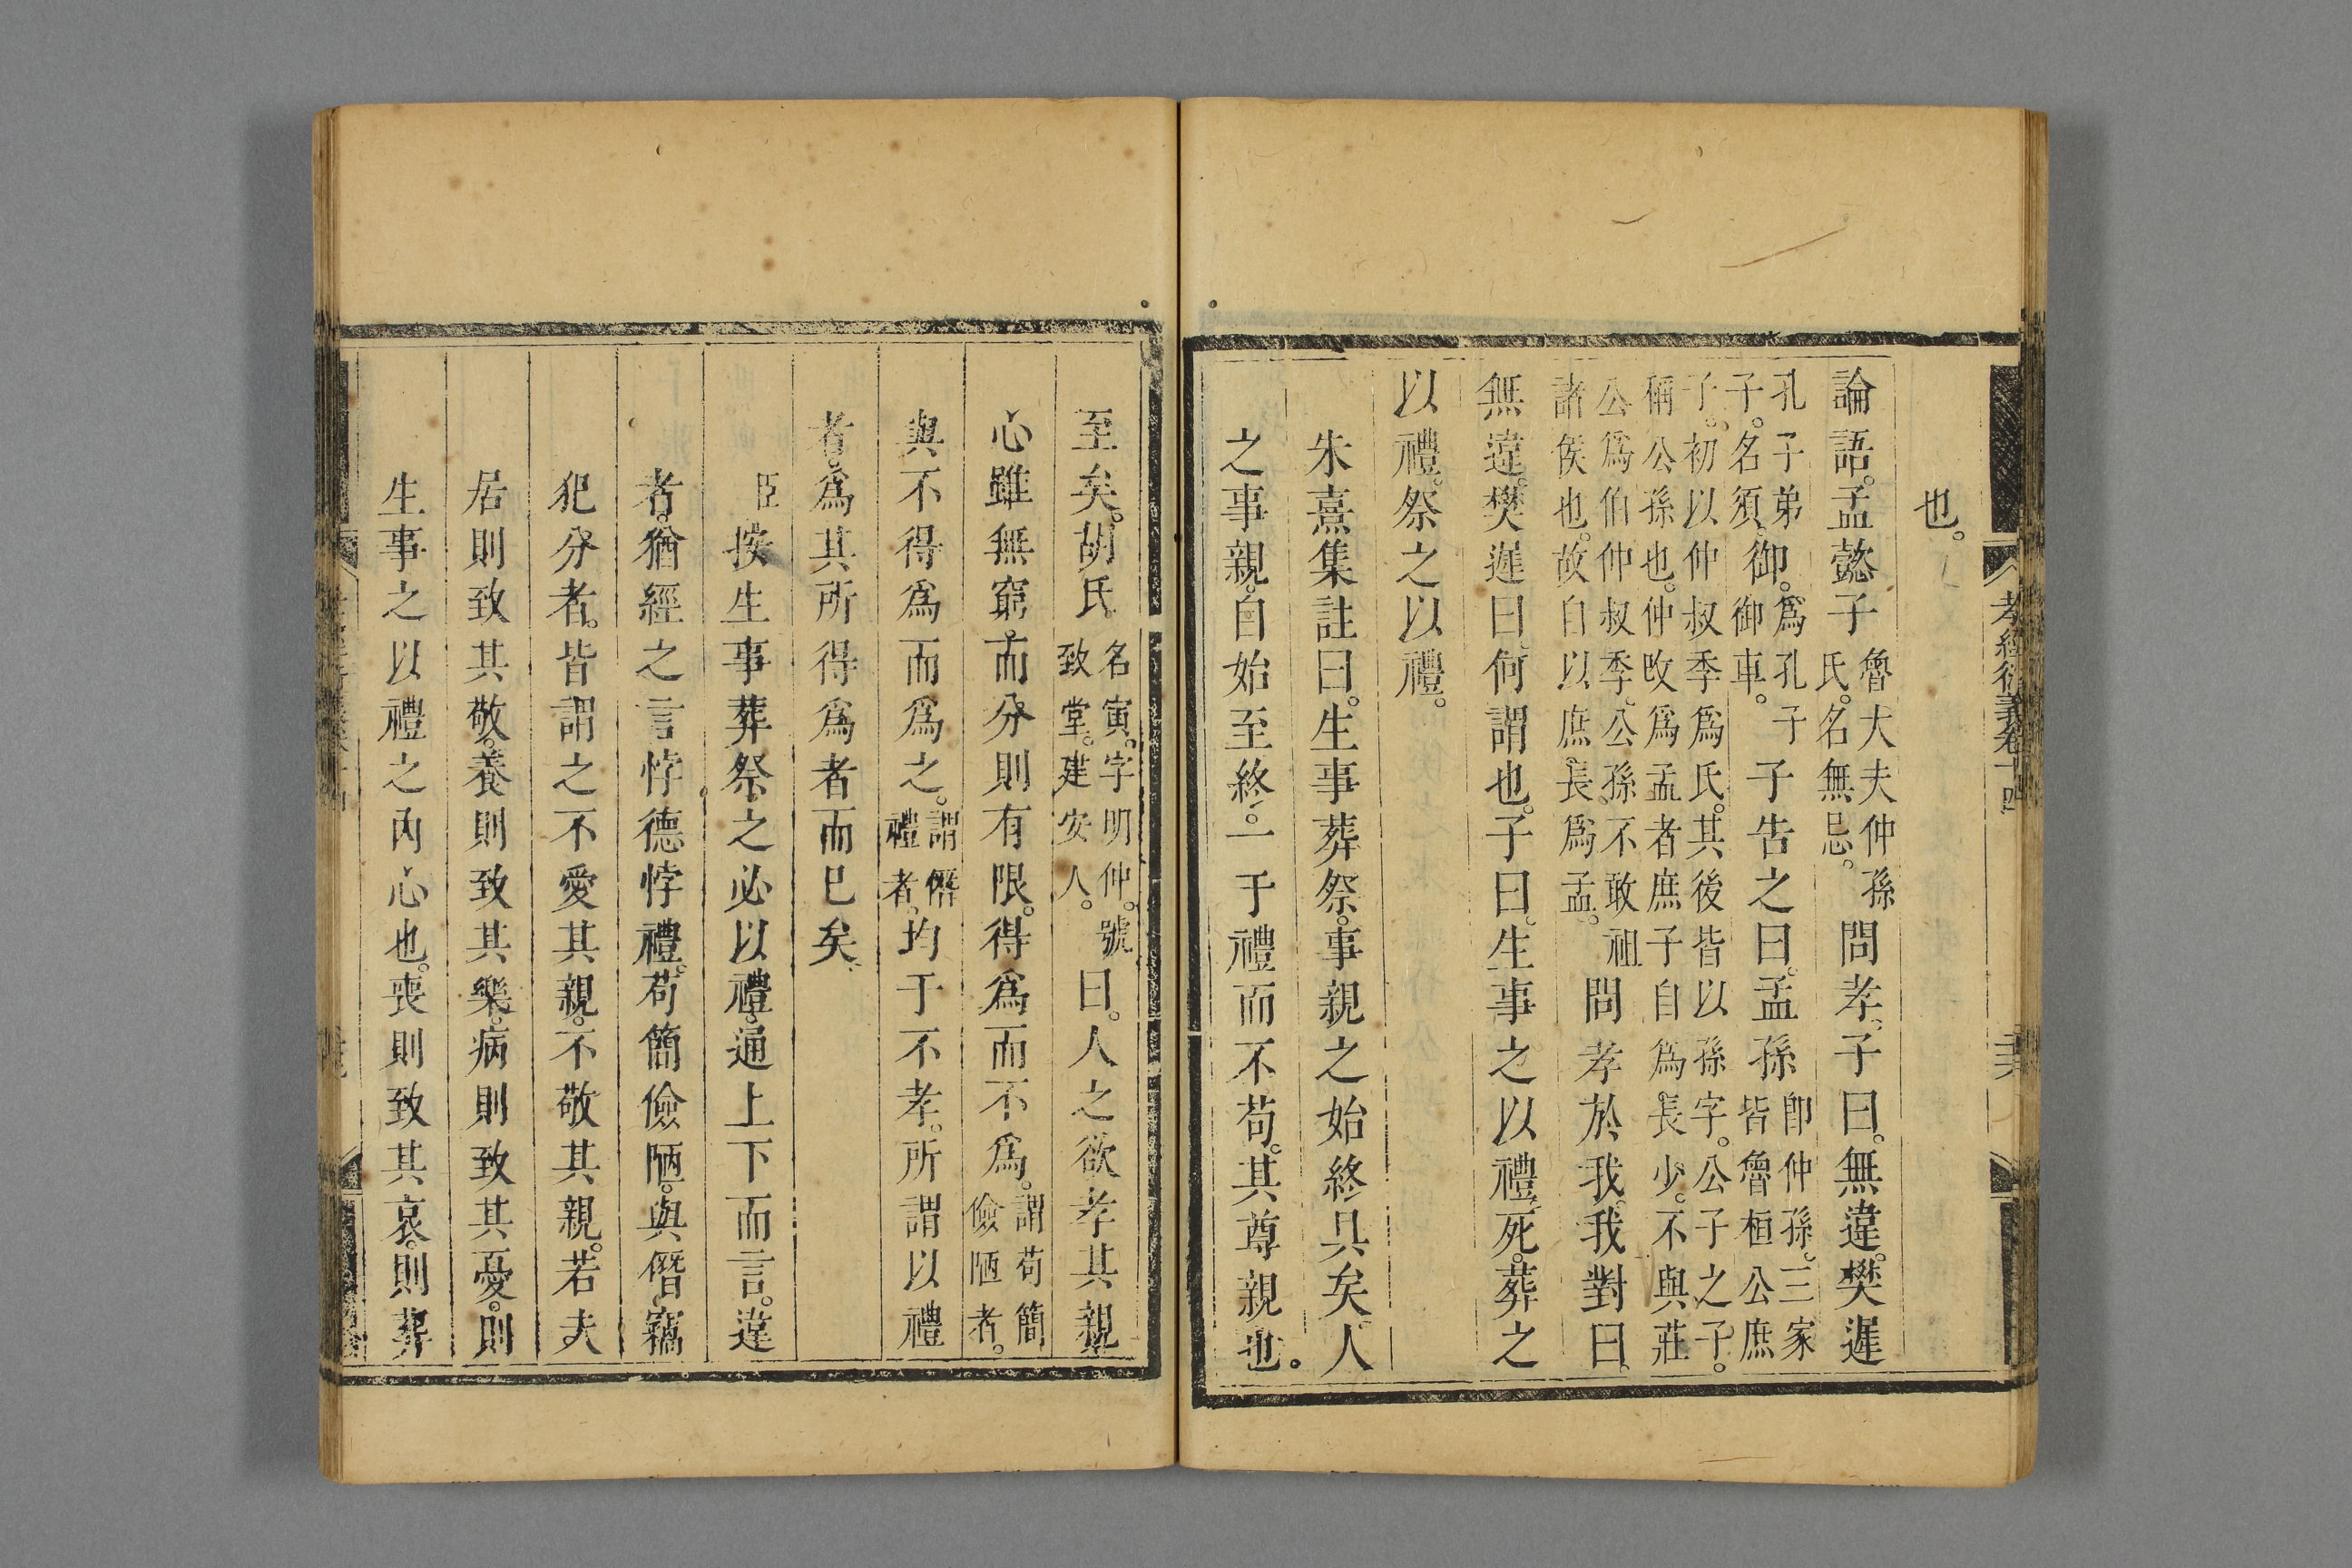 孝經衍義卷十四
也。
論語。孟懿子魯大夫仲孫氏。名無忌。問孝。子曰。無違。樊遲
孔子弟子。名須。御。爲孔子御車。子告之曰。孟孫卽仲孫。三家皆魯桓公庶
子。初以仲叔季爲氏。其後皆以孫字。公子之子。稱公孫也。仲改爲孟者庶子自爲長少。不與莊
公爲伯仲叔季。公孫不敢祖諸侯也。故自以庶長爲孟。問孝於我。我對曰。
無違。樊遲曰。何謂也。子曰。生事之以禮。死。葬之
以禮。祭之以禮。
朱熹集註曰。生事葬祭。事親之始終具矣。人
之事親。自始至終。一于禮而不苟。其尊親也。
至矣。胡氏名寅。字明仲。號致堂。建安人。曰。人之欲孝其親
心雖無窮。而分則有限。得爲而不爲。謂苟簡儉陋者。
與不得爲而爲之。謂僭禮者。均于不孝。所謂以禮
者。爲其所得爲者而已矣。
臣按生事葬祭之必以禮。通上下而言。違
者。猶經之言悖德悖禮。苟簡儉陋。與僭竊
犯分者。皆謂之不愛其親。不敬其親。若夫
居則致其敬。養則致其樂。病則致其憂。則
生事之以禮之內心也。喪則致其哀。則葬